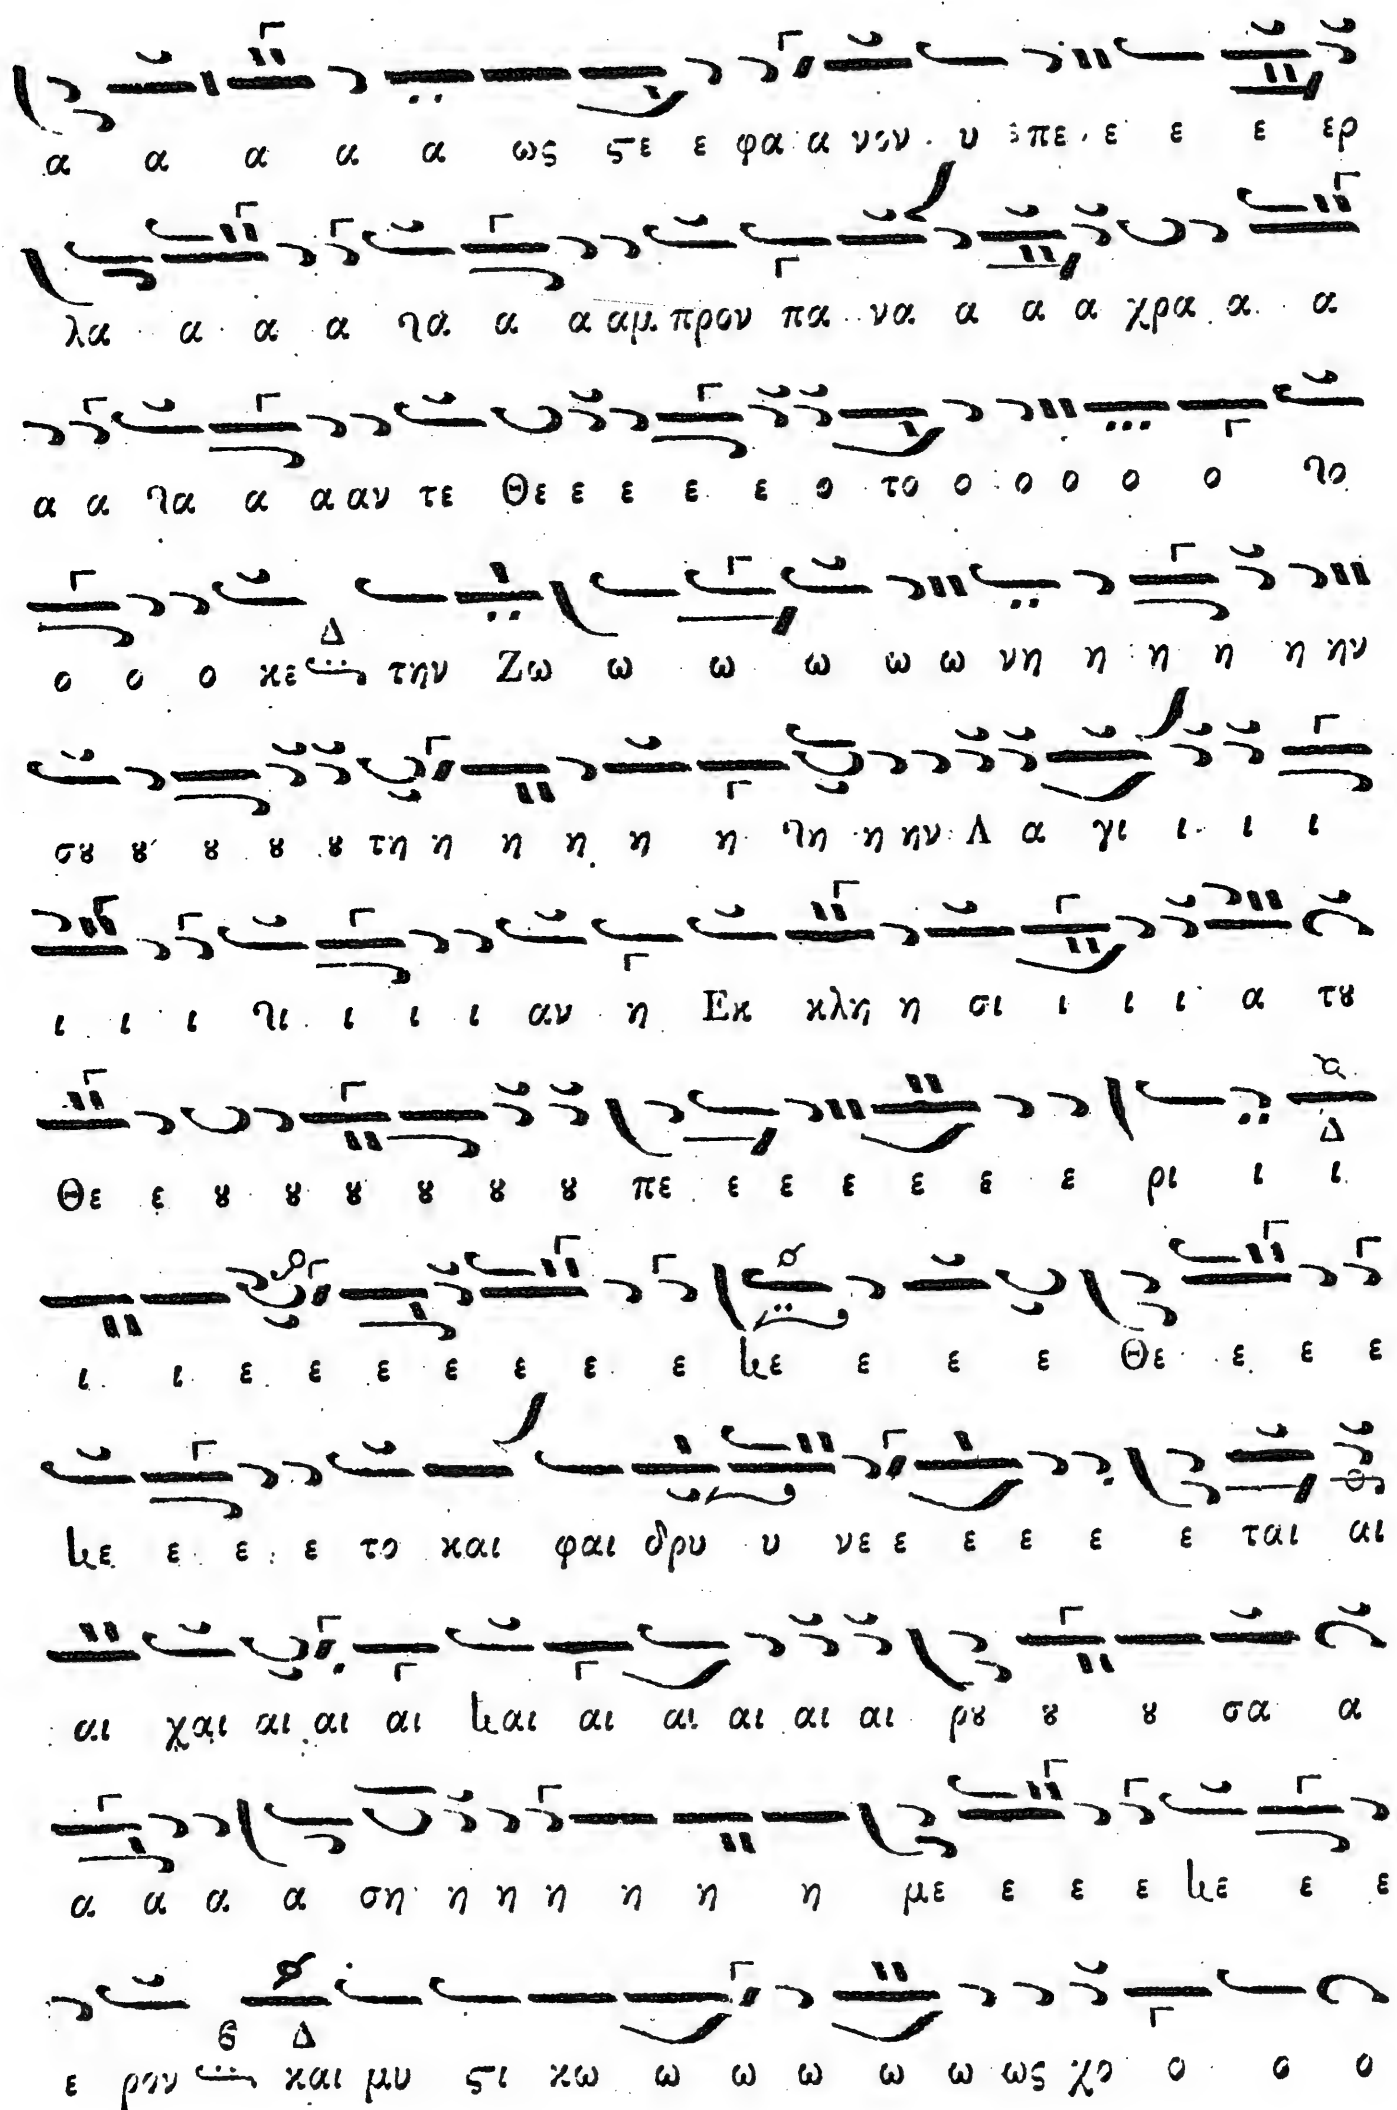 α α α α α ως ϛε ε φα α νον υ επε ε ε ε ερ
λα α α α γα α α αμ προν πα να α α α χρα α α
α α γα α α αν τε Θε ε ε ε ε ο το ο ο ο ο ο γο
ο ο ο κε Δ την Ζω ω ω ω ω ω νη η η η η ην
σȣ ȣ ȣ ȣ ȣ τη η η η η η γη η ην Α α γι ι ι ι
ι ι ι γι ι ι ι αν η Εκ κλη η σι ι ι ι α τȣ
Θε ε ȣ ȣ ȣ ȣ ȣ ȣ πε ε ε ε ε ε ε ρι ι ι
ι ι ε ε ε ε ε ε ε χε ε ε ε Θε ε ε ε
χε ε ε ε το και φαι δρυ υ νε ε ε ε ε ε ται αι
αι χαι αι αι αι χαι αι αι αι αι αι ρȣ ȣ ȣ σα α
α α α α ση η η η η η η με ε ε ε χε ε ε
ε ρον ϐ Δ και μυ ϛι κω ω ω ω ω ω ως χο ο ο ο